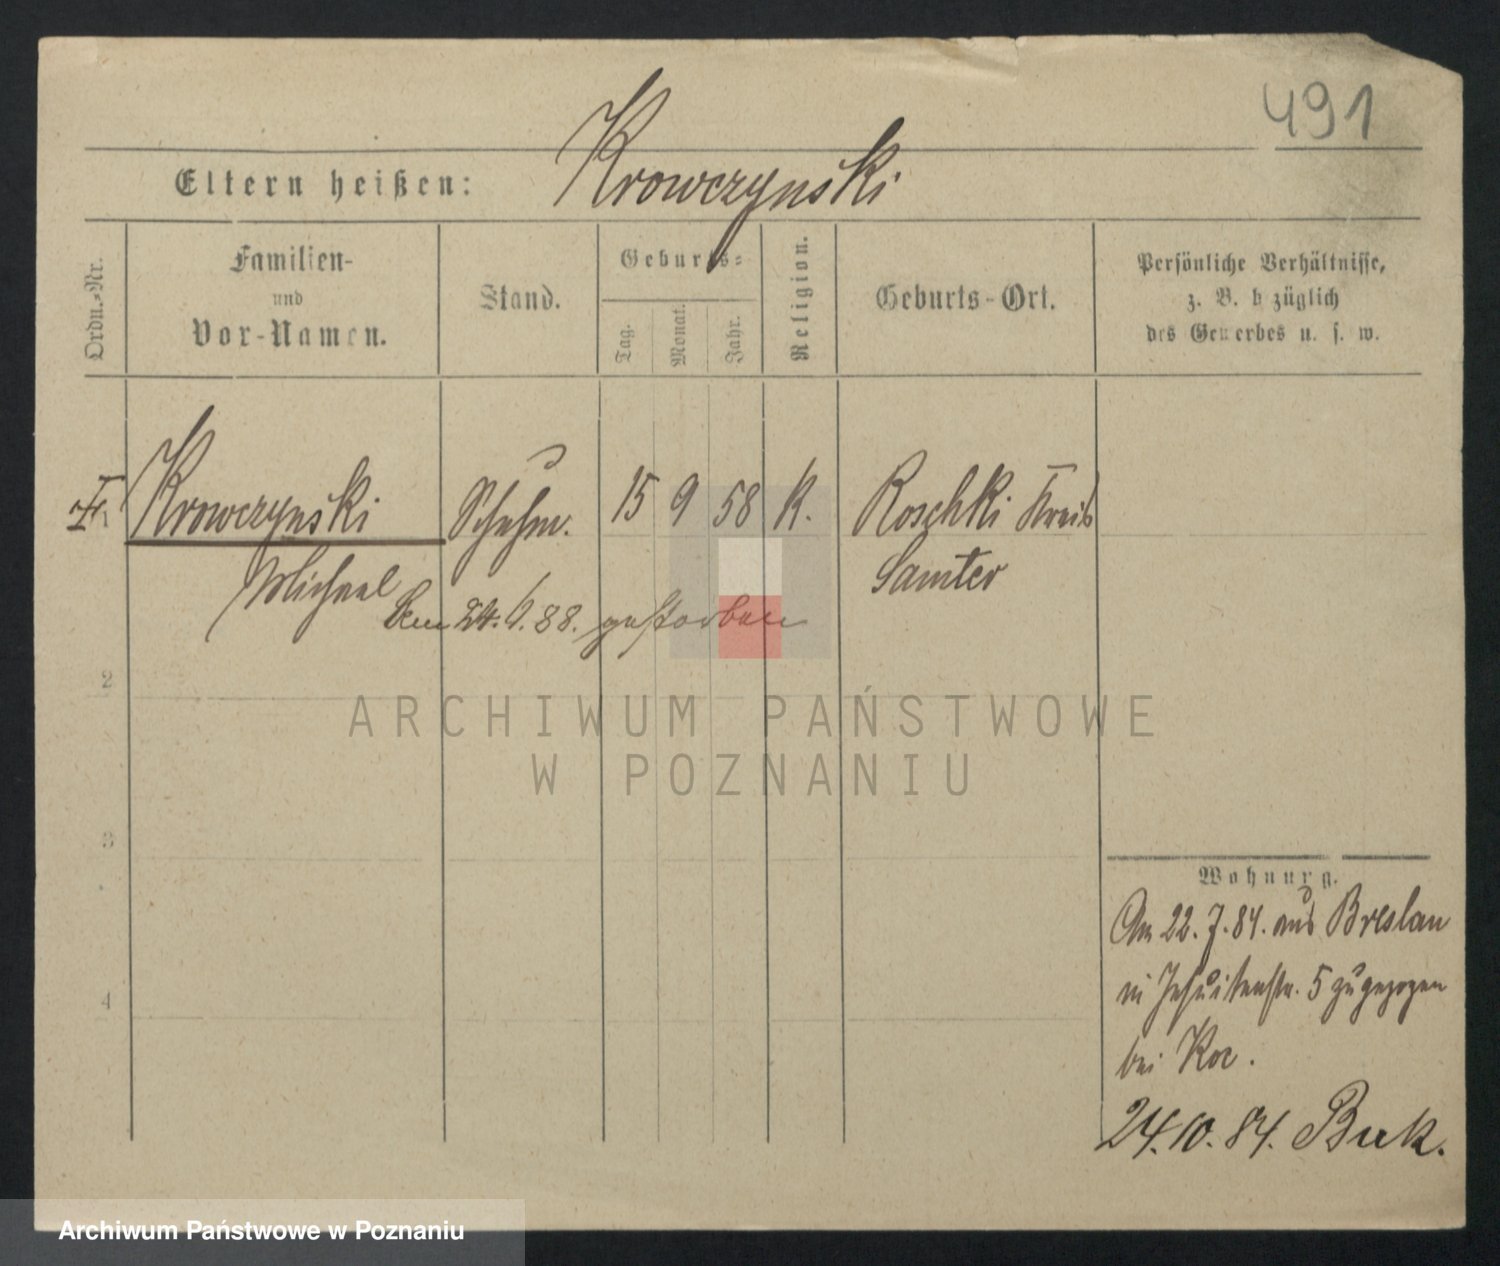 491
Eltern heißen: Krowczynski
Ordn.-Nr.
Familien-
und
Vor-Namen.
Stand.
Geburts-
Tag.
Monat.
Jahr.
Religion.
Geburts-Ort.
Persönliche Verhältnisse,
z. B. bezüglich
des Gewerbes u. s. w.
1 Krowczynski Schuhm. 15 9 58 K. Roschki Kreis
Michael Samter
Am 24. 88. gestorben
2
ARCHIWUM PAŃSTWOWE
W POZNANIU
3
Wohnung.
Am 22.7.84. aus Breslau
in Jesuitenstr. 5 zugezogen
4
bei
24.10.84. Buk.
Archiwum Państwowe w Poznaniu